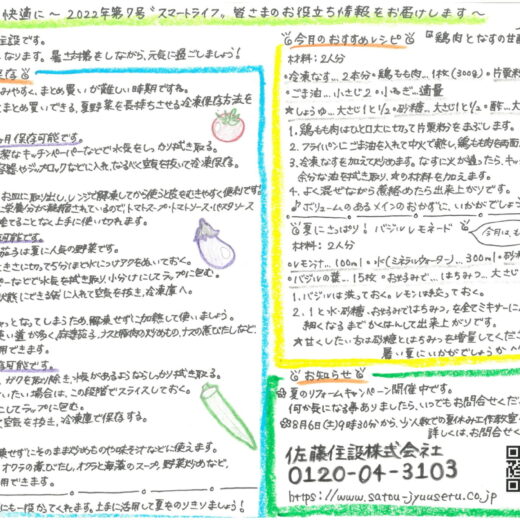 快適に～2022年第7号“スマートライフ”皆さまのお役立ち情報をお届けします～
住設です。
なります。暑さ対策をしながら、元気に過ごしましょう!
保存
みやすく、まとめ買いが難しい時期ですね。
とまとめ買いできる、夏野菜を長持ちさせる冷凍保存方法を
ヵ月保存可能です。
潔なキッチンペーパーなどで水気をしっかり拭き取る。
容器やジップロックなどに入れ、なるべく空気を抜いて冷凍保存。
お皿に取り出し、レンジで解凍してから使うと皮をむきやすく便利です。
捨てることなく上手に使い切れます。
茄子は夏に人気の野菜です。
きさに切って5分ほど水につけアクをぬいておく。
ペーパーなどで水気を拭き取り、小分けにしてラップに包む。
状態にできる袋に入れて空気を抜き、冷凍庫へ。
ャっとなってしまうため、解凍せずに加熱して使いましょう。
用できます。
存可能です。
、ガクを取り除き、水気があるようならしっかり拭き取る。
いたい場合は、この段階でスライスしておく。
にしてラップに包む。
て空気を抜き、冷凍庫で保存する。
凍せずにそのまま炒めものや味噌汁などに使えます。
、オクラの煮びたし、オクラと海藻のスープ、野菜炒めなど、
用できます。
にも一役かってくれます。上手に活用して夏をのりきりましょう!
今月のおすすめレシピ
『鶏肉となすの甘酢
材料:2人分
・冷凍なす…2本分・鶏もも肉…1枚(300g)・片栗粉
・ごま油…小さじ2・小ねぎ…適量
★しょうゆ…大さじ1と1/2・砂糖…大さじ1と1/2・酢…大さ
1.鶏もも肉はひと口大に切って片栗粉をまぶします。
2.フライパンにごま油を入れて中火で熱し、鶏もも肉を両面
3.冷凍なすを加えて炒めます。なすに火が通ったら、キッチ
余分な油を拭き取り、★の材料を加えます。
4.よく混ぜながら煮絡めたら出来上がりです。
♪ボリュームのあるメインのおかずに、いかがでしょう
夏にさっぱり!バジルレモネード
今月は、も
材料:2人分
・レモン汁…100ml・水(ミネラルウォーターなど)…300ml・砂糖
・バジルの葉…15枚・お好みで…はちみつ…大さじ
1.バジルは洗っておく。レモンは絞っておく。
2.1と水・砂糖、お好みではちみつ、を全てミキサーに
細くなるまでかくはんして出来上がりです。
★甘くしたい方は砂糖とはちみつを増量してくださ
暑い夏にいかがでしょうか
お知らせ
夏のリフォームキャンペーン開催中です。
何か気になる事ありましたら、いつでもお問合せくださ
8月6日(土)9時30分から、少人数での夏休み工作教室
詳しくは、お問合せく
佐藤住設株式会社
0120-04-3103
https://www.satou-jyuusetu.co.jp